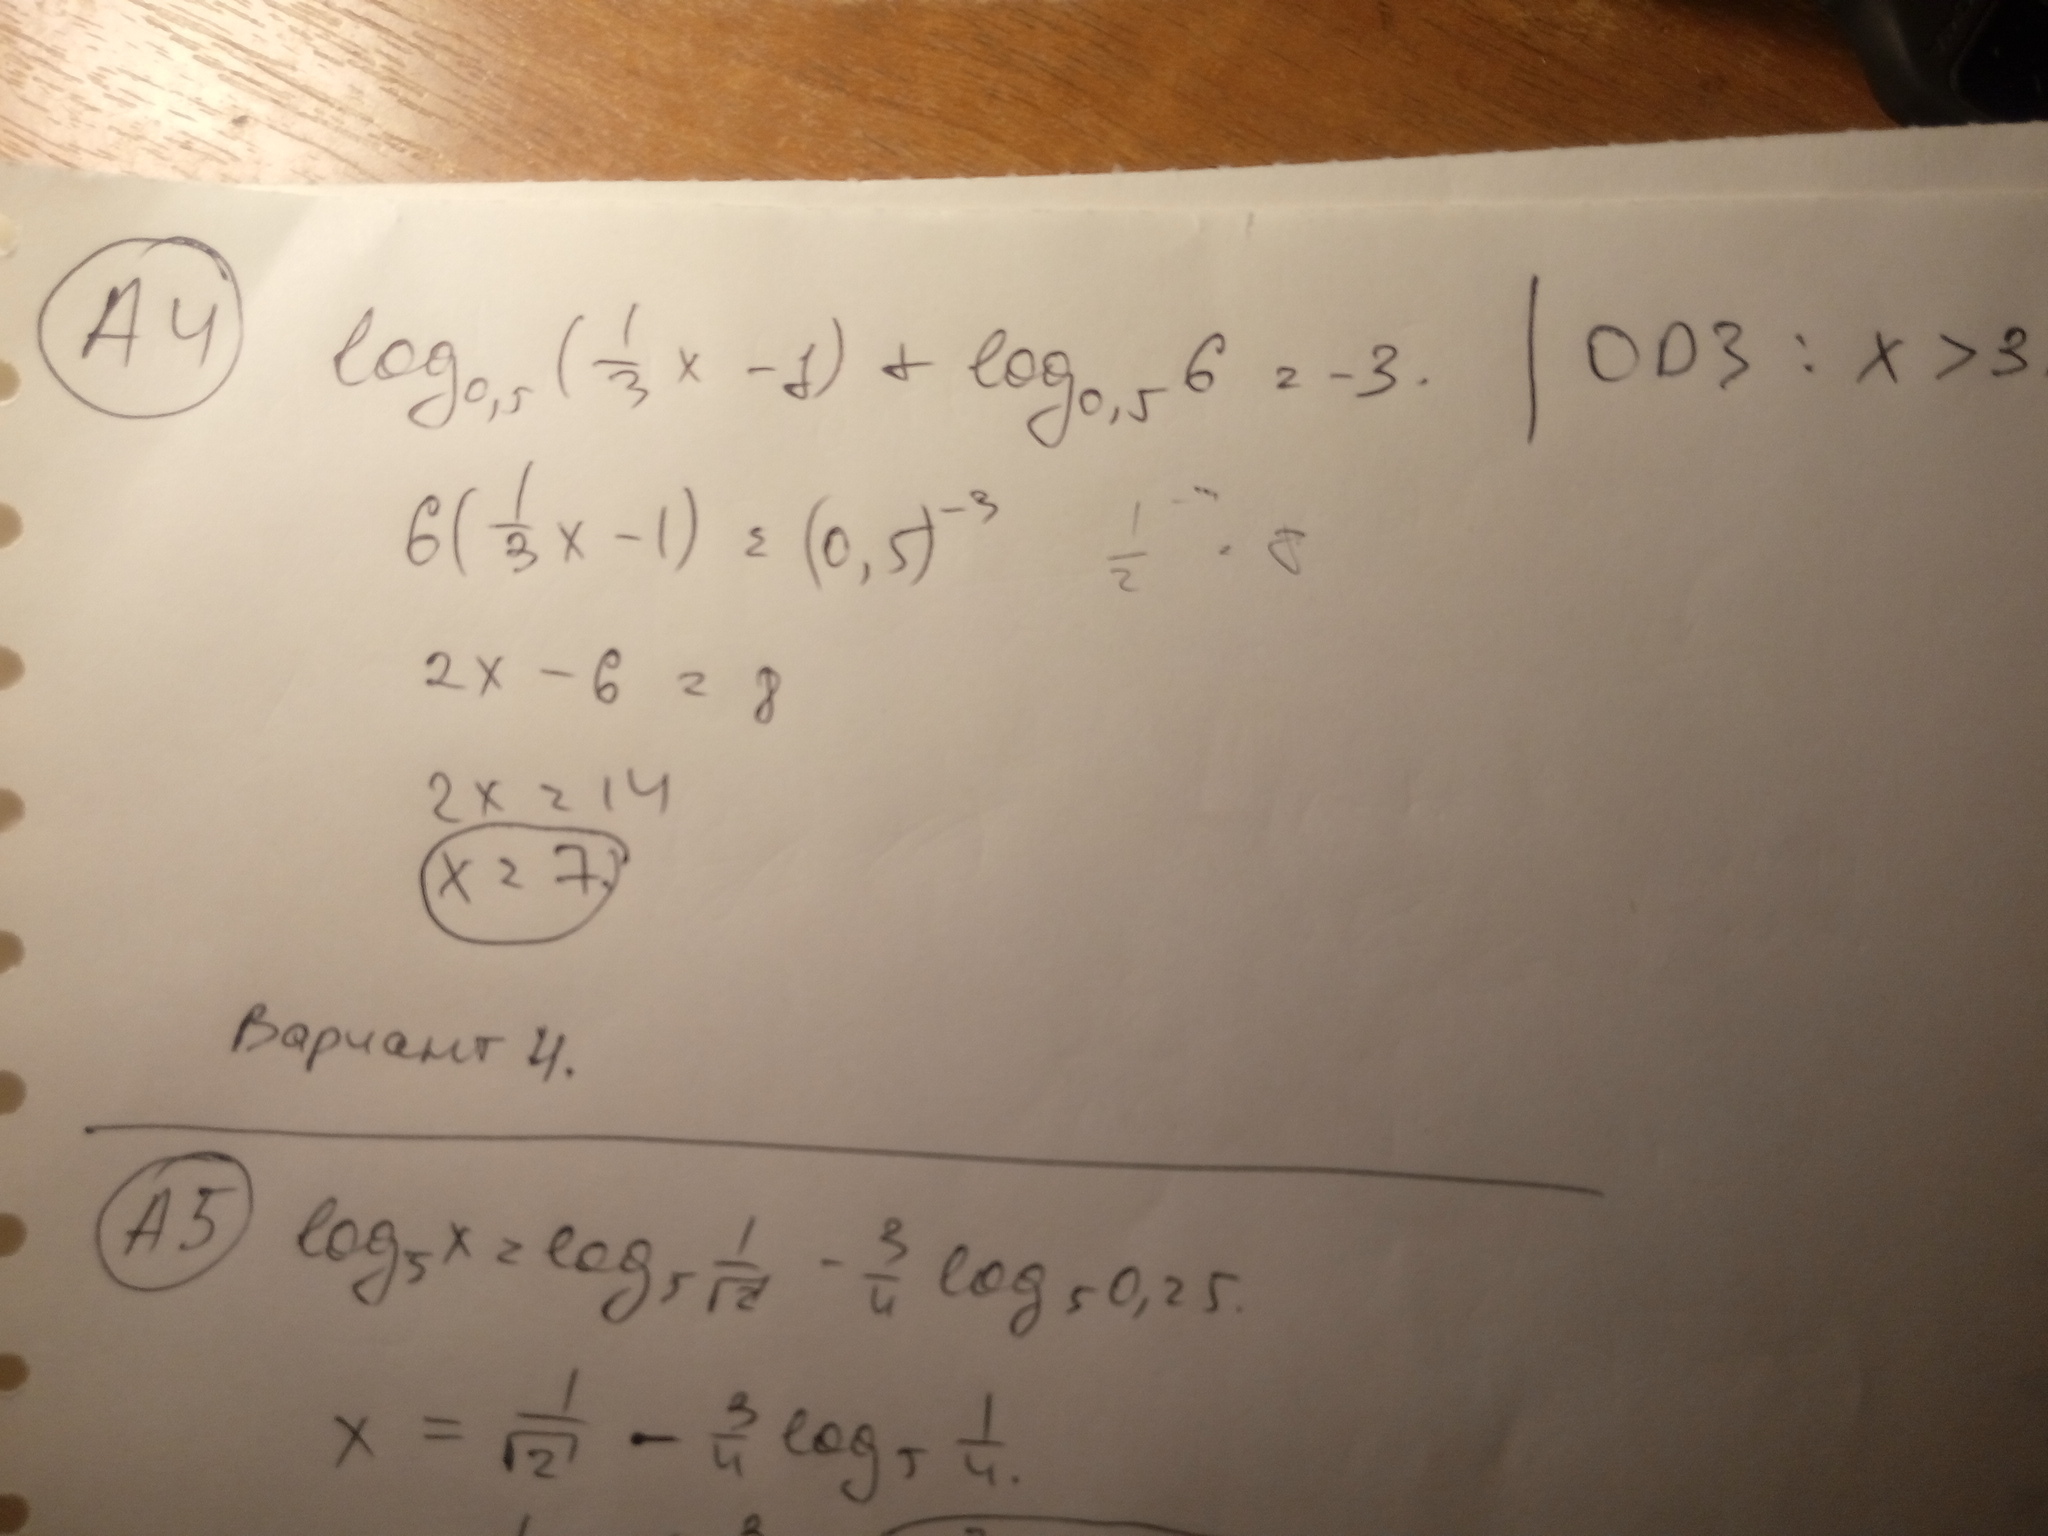 А4 log₀,₅ (1/3 x - 1) + log₀,₅ 6 = -3. | ОДЗ : x > 3.
6(1/3 x - 1) = (0,5)⁻³ 1/2⁻³ = 8
2x - 6 = 8
2x = 14
x = 7.
Вариант 4.
А5 log₅ x = log₅ 1/√2 - 3/4 log₅ 0,25.
x = 1/√2 - 3/4 log₅ 1/4.